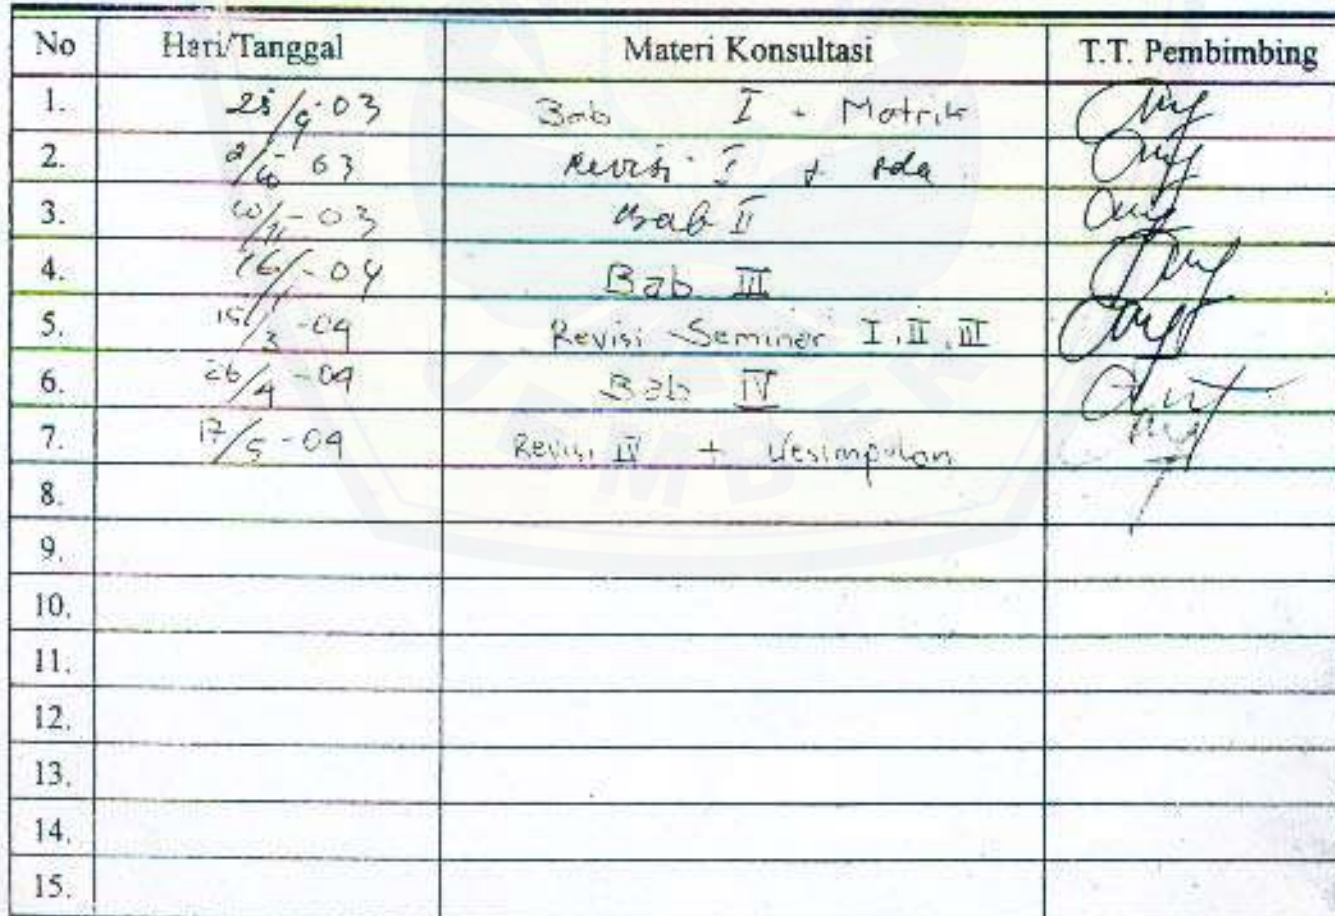 No Hari/Tanggal Materi Konsultasi T.T. Pembimbing
1. 25/9-03 Bab I + Matrik
2. 2/10 03 Revisi I +
3. 10/11-03 Bab II
4. 16/1-04 Bab III
5. 15/3-04 Revisi Seminar I, II, III
6. 26/4-04 Bab IV
7. 17/5-04 Revisi IV + Kesimpulan
8.
9.
10.
11.
12.
13.
14.
15.
JEMBER